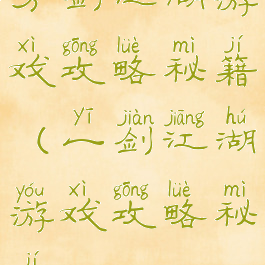 xì gōng lüè mì jí
戏攻略秘籍
yī jiàn jiāng hú
（一剑江湖
yóu xì gōng lüè mì
游戏攻略秘
jí